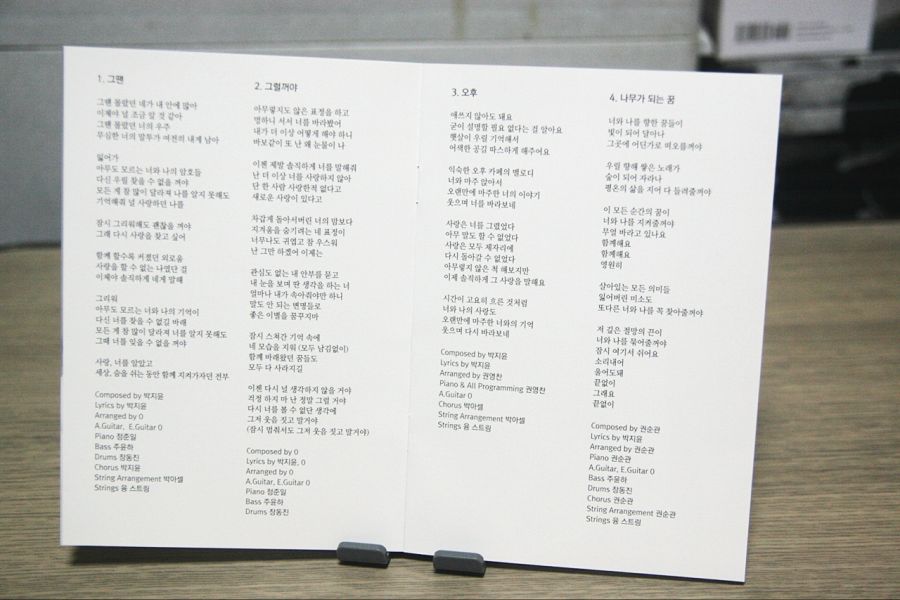 1. 그땐
그땐 몰랐던 네가 내 안에 많아
이제야 널 조금 알 것 같아
그땐 몰랐던 너의 우주
무심한 너의 말투가 여전히 내게 남아
잃어가
아무도 모르는 너와 나의 암호들
다신 우릴 찾을 수 없을 꺼야
모든 게 참 많이 달라져 나를 알지 못해도
기억해줘 널 사랑하던 나를
잠시 그리워해도 괜찮을 꺼야
그래 다시 사랑을 찾고 싶어
함께 할수록 커졌던 외로움
사랑을 할 수 없는 나였단 걸
이제야 솔직하게 네게 말해
그리워
아무도 모르는 너와 나의 기억이
다신 너를 찾을 수 없길 바래
모든 게 참 많이 달라져 너를 알지 못해도
그때 너를 잊을 수 없을 꺼야
사랑, 너를 알았고
세상, 숨을 쉬는 동안 함께 지켜가자던 전부
Composed by 박지윤
Lyrics by 박지윤
Arranged by 0
A.Guitar, E.Guitar 0
Piano 정준일
Bass 주윤하
Drums 장동진
Chorus 박지윤
String Arrangement 박아셀
Strings 융 스트링
2. 그럴꺼야
아무렇지도 않은 표정을 하고
멍하니 서서 너를 바라봤어
내가 더 이상 어떻게 해야 하니
바보같이 또 난 왜 눈물이 나
이젠 제발 솔직하게 너를 말해줘
난 더 이상 너를 사랑하지 않아
단 한 사람 사랑한적 없다고
새로운 사랑이 있다고
차갑게 돌아서버린 너의 맘보다
지겨움을 숨기려는 네 표정이
너무나도 귀엽고 참 우스워
난 그만 하겠어 이제는
관심도 없는 내 안부를 묻고
내 눈을 보며 딴 생각을 하는 너
얼마나 내가 속아줘야만 하니
말도 안 되는 변명들로
좋은 이별을 꿈꾸지마
잠시 스쳐간 기억 속에
네 모습을 지워 (모두 남김없이)
함께 바래왔던 꿈들도
모두 다 사라지길
이젠 다시 널 생각하지 않을 거야
걱정 하지 마 난 정말 그럴 거야
다시 너를 볼 수 없단 생각에
그저 웃을 짓고 말거야
(잠시 멈춰서도 그저 웃을 짓고 말거야)
Composed by 0
Lyrics by 박지윤, 0
Arranged by 0
A.Guitar, E.Guitar 0
Piano 정준일
Bass 주윤하
Drums 장동진
3. 오후
애쓰지 않아도 돼요
굳이 설명할 필요 없다는 걸 알아요
햇살이 우릴 기억해서
어색한 공길 따스하게 해주어요
익숙한 오후 카페의 멜로디
너와 마주 앉아서
오랜만에 마주한 너의 이야기
웃으며 너를 바라보네
사랑은 너를 그렸었다
아무 말도 할 수 없었다
사랑은 모두 제자리에
다시 돌아갈 수 없었다
아무렇지 않은 척 해보지만
이제 솔직하게 그 사랑을 말해요
시간이 고요히 흐른 것처럼
너와 나의 사랑도
오랜만에 마주한 너와의 기억
웃으며 다시 바라보네
Composed by 박지윤
Lyrics by 박지윤
Arranged by 권영찬
Piano & All Programming 권영찬
A.Guitar 0
Chorus 박아셀
String Arrangement 박아셀
Strings 융 스트링
4. 나무가 되는 꿈
너와 나를 향한 꿈들이
빛이 되어 달아나
그곳에 어딘가로 떠오를꺼야
우릴 향해 쌓은 노래가
숲이 되어 자라나
평온의 삶을 지어 다 들려줄꺼야
이 모든 순간의 꿈이
너와 나를 지켜줄꺼야
무얼 바라고 있나요
함께해요
함께해요
영원히
살아있는 모든 의미들
잃어버린 미소도
또다른 너와 나를 꼭 찾아줄꺼야
저 깊은 절망의 끈이
너와 나를 묶어줄꺼야
잠시 여기서 쉬어요
소리내어
울어도돼
끝없이
그래요
끝없이
Composed by 권순관
Lyrics by 박지윤
Arranged by 권순관
Piano 권순관
A.Guitar, E.Guitar 0
Bass 주윤하
Drums 장동진
Chorus 권순관
String Arrangement 권순관
Strings 융 스트링